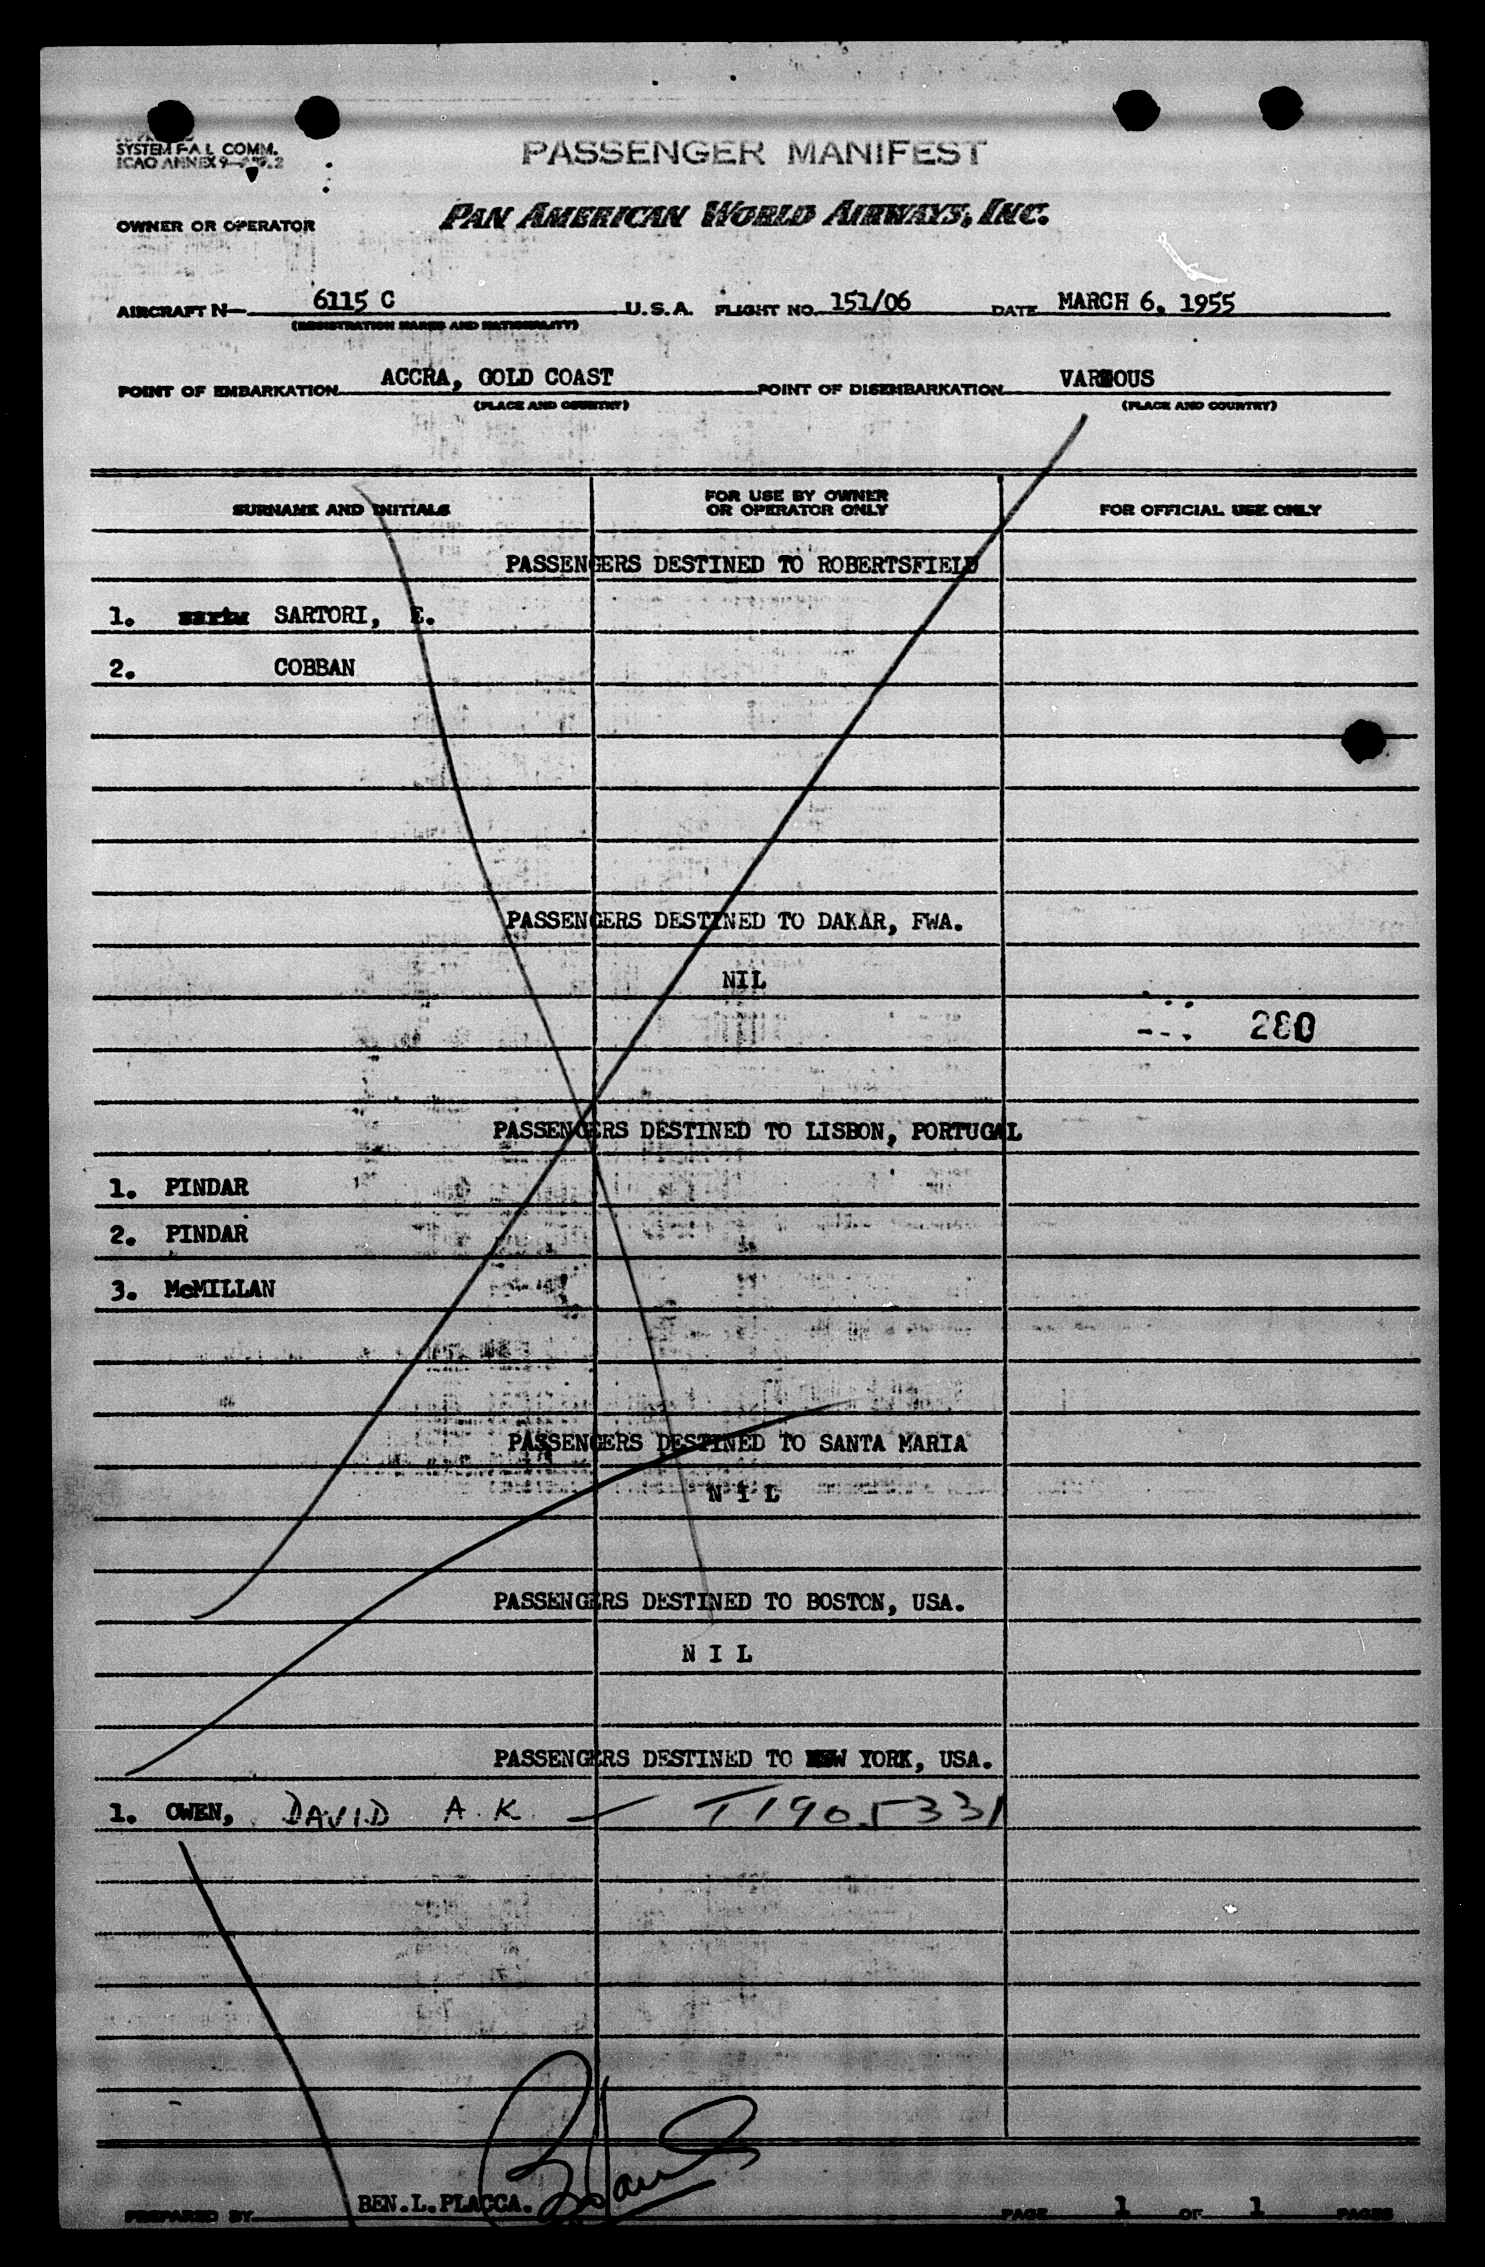 SYSTEM F-A L COMM.
ICAO ANNEX 9
PASSENGER MANIFEST
OWNER OR OPERATOR PAN AMERICAN WORLD AIRWAYS, INC.
AIRCRAFT N— 6115 C U.S.A. FLIGHT NO. 151/06 DATE MARCH 6, 1955
(REGISTRATION MARKS AND NATIONALITY)
POINT OF EMBARKATION ACCRA, GOLD COAST POINT OF DISEMBARKATION VARIOUS
(PLACE AND COUNTRY) (PLACE AND COUNTRY)
SURNAME AND INITIALS FOR USE BY OWNER OR OPERATOR ONLY FOR OFFICIAL USE ONLY
PASSENGERS DESTINED TO ROBERTSFIELD
1. SARTORI, E.
2. COBBAN
PASSENGERS DESTINED TO DAKAR, FWA.
NIL
280
PASSENGERS DESTINED TO LISBON, PORTUGAL
1. PINDAR
2. PINDAR
3. McMILLAN
PASSENGERS DESTINED TO SANTA MARIA
N I L
PASSENGERS DESTINED TO BOSTON, USA.
N I L
PASSENGERS DESTINED TO NEW YORK, USA.
1. OWEN, DAVID A. K. — T1905331
PREPARED BY BEN.L.PLACCA. PAGE 1 OF 1 PAGES